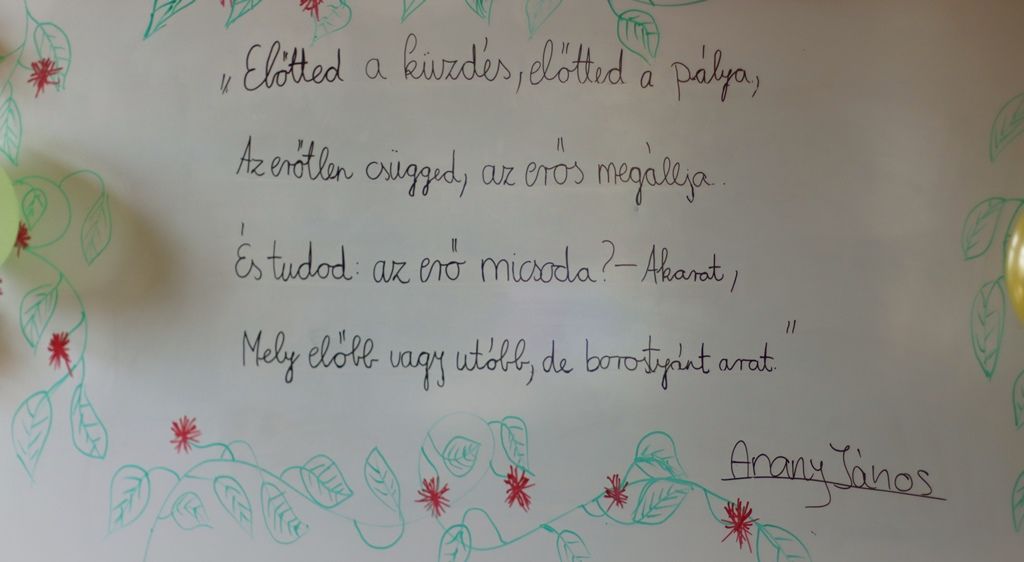 „Előtted a küzdés, előtted a pálya,
Az erőtlen csügged, az erős megállja.
És tudod: az erő micsoda? – Akarat,
Mely előbb vagy utóbb, de borostyánt arat."
Arany János